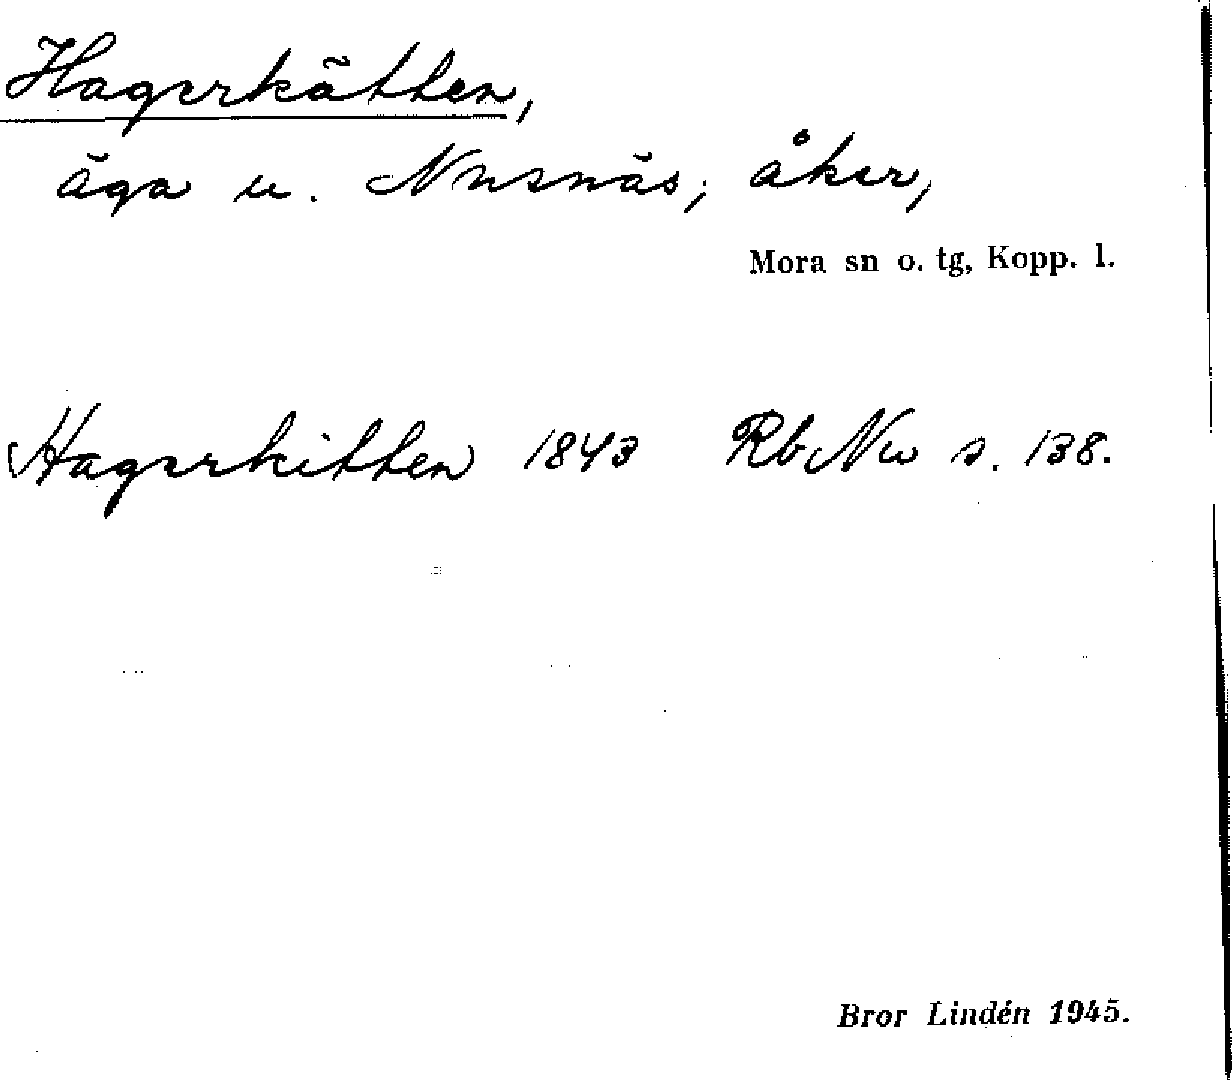 Hagerkätten,
äga u. Nusnäs, åker,
Mora sn o. tg, Kopp. l.
Hagerkitten 1843 Rb Nw s. 138.
Bror Lindén 1945.